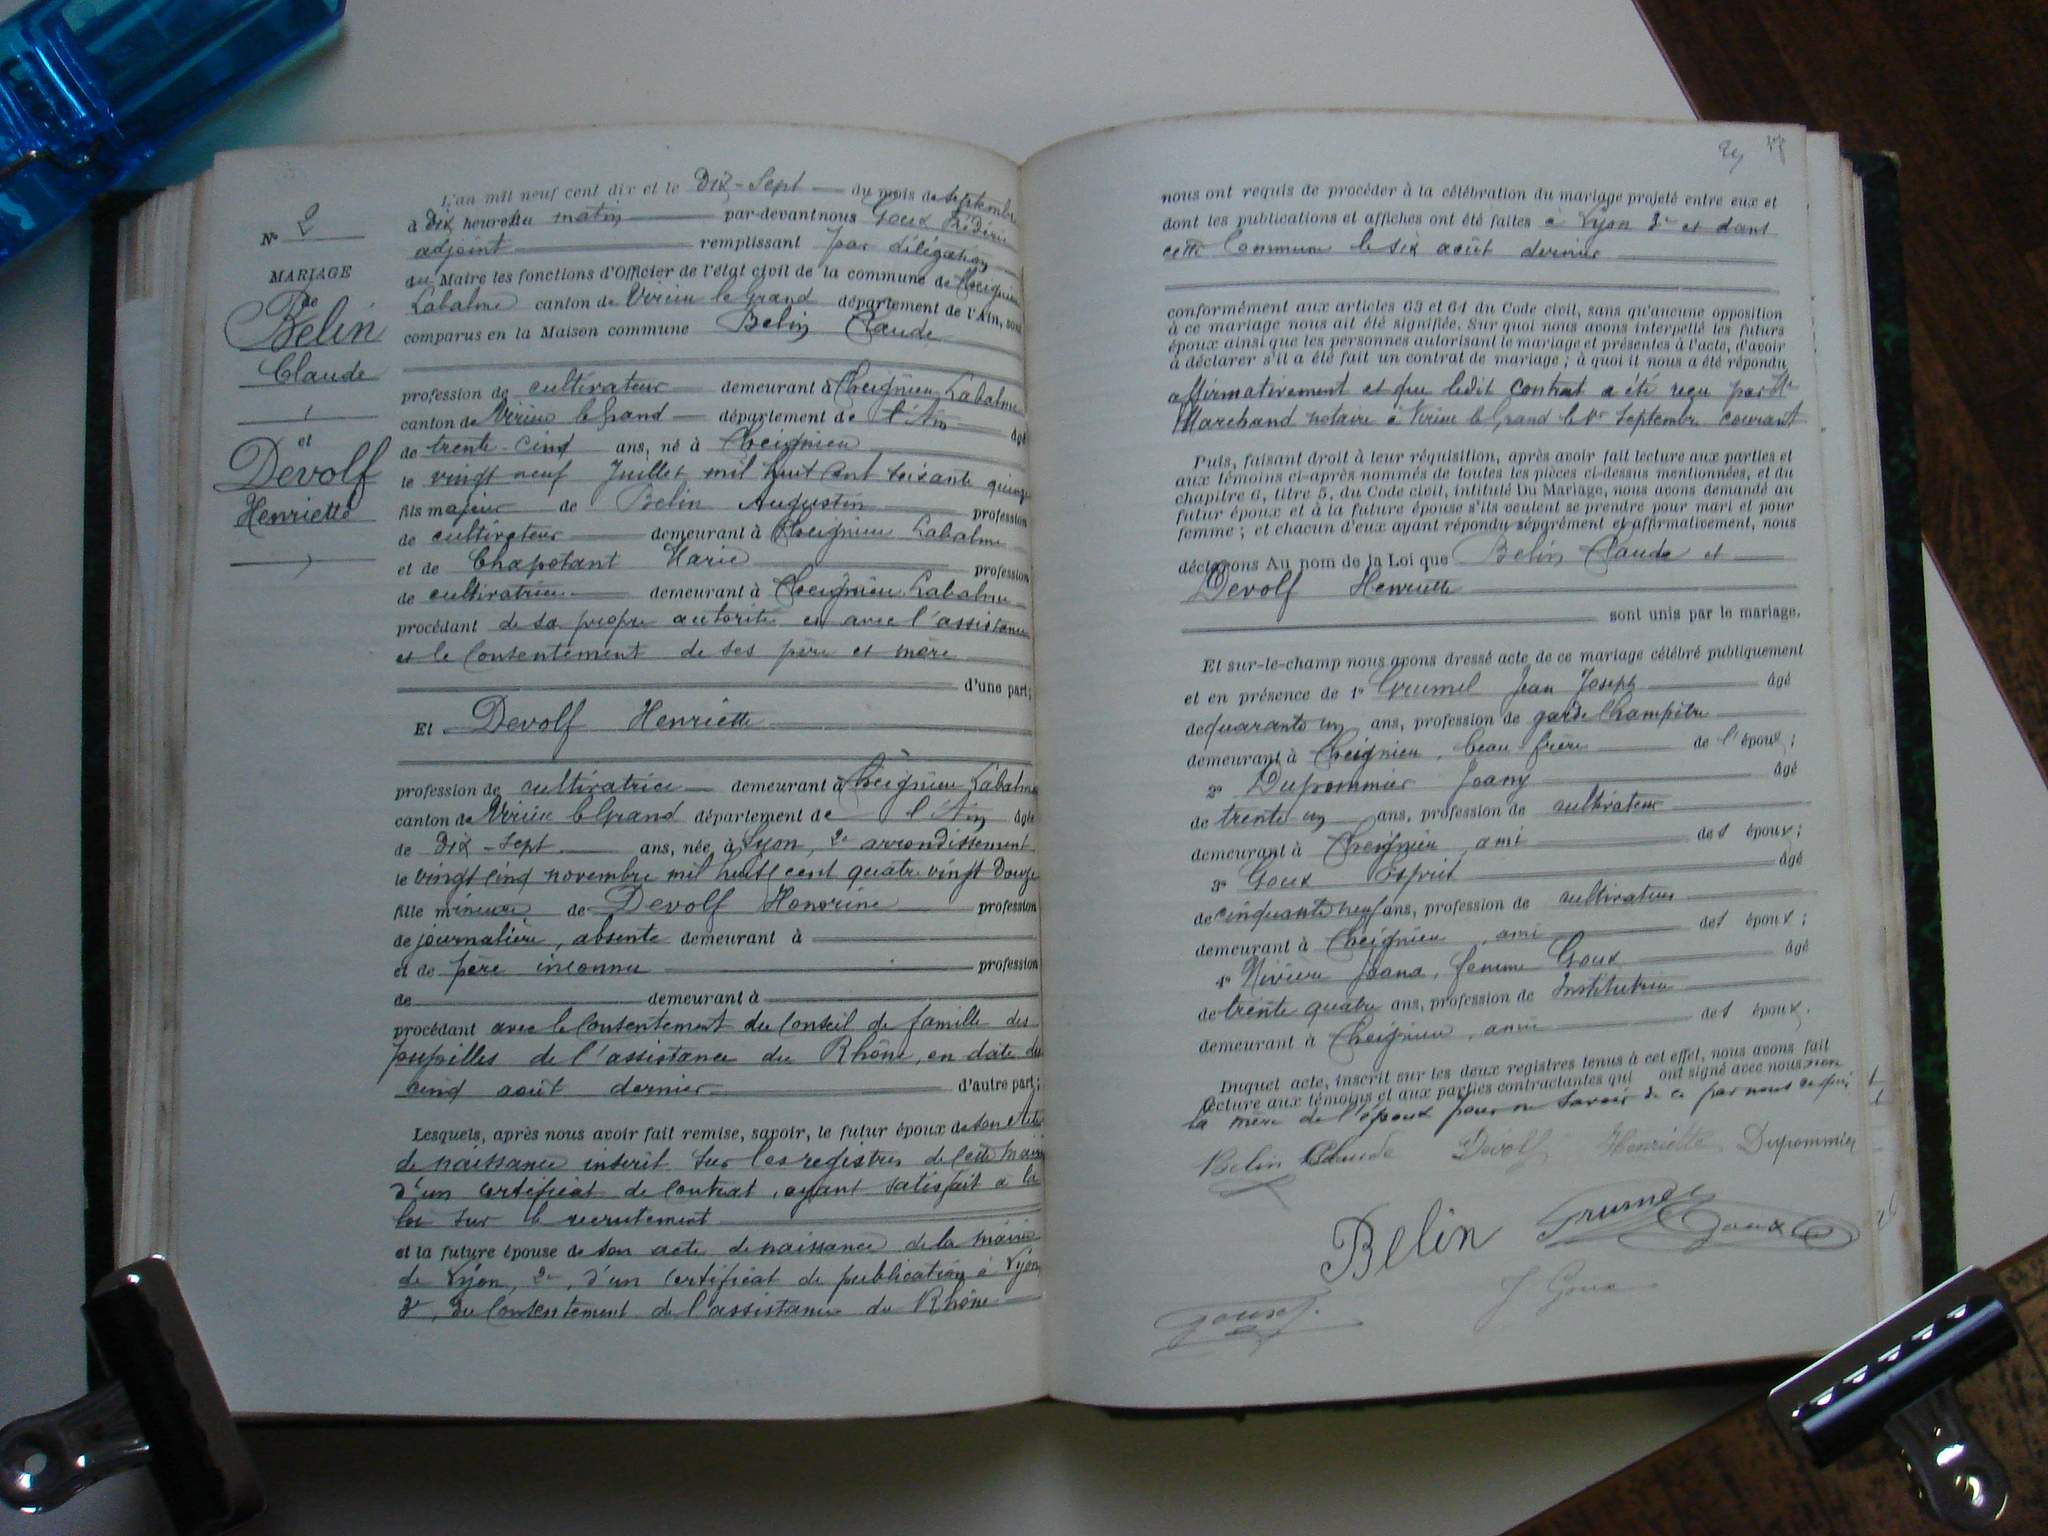 N° 2
MARIAGE
de
Belin
Claude
et
Devolf
Henriette
L'an mil neuf cent dix et le Dix-Sept du mois de septembre
à dix heures du matin par-devant nous Goux Frédéric
adjoint remplissant par délégation
du Maire les fonctions d'Officier de l'état civil de la commune de Cheignieu
Labalme canton de Virieu le Grand département de l'Ain, sont
comparus en la Maison commune Belin Claude
profession de cultivateur demeurant à Cheignieu Labalme
canton de Virieu le Grand département de l'Ain âgé
de trente-cinq ans, né à Cheignieu
le vingt neuf Juillet mil huit cent soixante quinze
fils majeur de Belin Augustin profession
de cultivateur demeurant à Cheignieu Labalme
et de Chapotant Marie profession
de cultivatrice demeurant à Cheignieu Labalme
procédant de sa propre autorité et avec l'assistance
et le Consentement de ses père et mère
d'une part;
Et Devolf Henriette
profession de cultivatrice demeurant à Cheignieu Labalme
canton de Virieu le Grand département de l'Ain âgée
de dix-sept ans, née à Lyon, 2e arrondissement
le vingt cinq novembre mil huit cent quatre vingt douze
fille mineure de Devolf Honorine profession
de journalière, absente demeurant à
et de père inconnu profession
de demeurant à
procédant avec le Consentement du Conseil de famille des
pupilles de l'assistance du Rhône, en date du
cinq août dernier d'autre part;
Lesquels, après nous avoir fait remise, savoir, le futur époux de son acte
de naissance inscrit sur les registres de cette mairie
d'un certificat de contrat, ayant satisfait à la
loi sur le recrutement
et la future épouse de son acte de naissance de la mairie
de Lyon, 2e, d'un certificat de publication à Lyon
3e, du Consentement de l'assistance du Rhône
nous ont requis de procéder à la célébration du mariage projeté entre eux et
dont les publications et affiches ont été faites à Lyon 3e et dans
cette Commune le six août dernier
conformément aux articles 63 et 64 du Code civil, sans qu'aucune opposition
à ce mariage nous ait été signifiée. Sur quoi nous avons interpellé les futurs
époux ainsi que les personnes autorisant le mariage et présentes à l'acte, d'avoir
à déclarer s'il a été fait un contrat de mariage; à quoi il nous a été répondu
affirmativement et que ledit contrat a été reçu par Me
Marchand notaire à Virieu le Grand le 1er Septembre courant
Puis, faisant droit à leur réquisition, après avoir fait lecture aux parties et
aux témoins ci-après nommés de toutes les pièces ci-dessus mentionnées, et du
chapitre 6, titre 5, du Code civil, intitulé Du Mariage, nous avons demandé au
futur époux et à la future épouse s'ils veulent se prendre pour mari et pour
femme; et chacun d'eux ayant répondu séparément et affirmativement, nous
déclarons Au nom de la Loi que Belin Claude et
Devolf Henriette
sont unis par le mariage.
Et sur-le-champ nous avons dressé acte de ce mariage célébré publiquement
et en présence de 1° Jean Joseph âgé
de quarante un ans, profession de garde Champêtre
demeurant à Cheignieu, beau frère de l'époux;
2° Dupommier Joany âgé
de trente un ans, profession de cultivateur
demeurant à Cheignieu, ami des époux;
3° Goux Esprit âgé
de cinquante neuf ans, profession de cultivateur
demeurant à Cheignieu, ami des époux;
4° Rivière Joana, femme Goux âgé
de trente quatre ans, profession de Institutrice
demeurant à Cheignieu, amie des époux.
Duquel acte, inscrit sur les deux registres tenus à cet effet, nous avons fait
lecture aux témoins et aux parties contractantes qui ont signé avec nous non
la mère de l'époux pour ne savoir de ce par nous requis
Belin Claude Devolf Henriette Dupommier
Belin Goux
J Goux